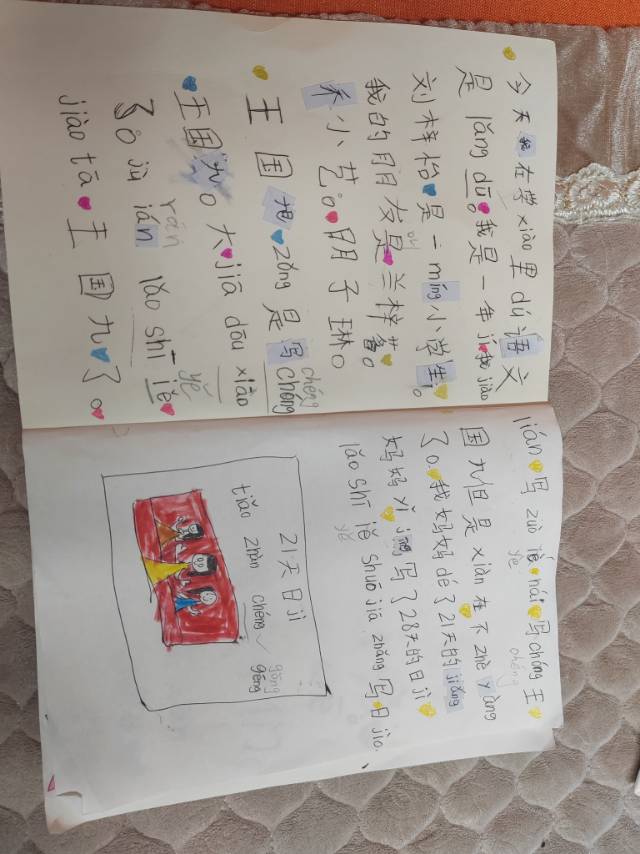 今天我在学xiào里dú语文
是lǎng dū。我是一年jí我jiào
刘梓怡是一míng小学生。
我的朋友是兰梓萱
乔小艺。朋子琳。
王国旭zǒng是写chóng
chéng
王国九。大jiā dōu xiào
了。jù rán lǎo shī iě
rán
yě
jiào tā王国九了。
lián写zuò iè nái写chóng王
yè
chéng
国九但是xiàn在不zhè yàng
了。我妈妈dé了21天的jiǎng
妈妈yǐ jīng写了28天的日jì
lǎo shī iě shuō jiā zhǎng写日jì。
yě
21天日jì
tiǎo zhàn chéng gēng
gōng